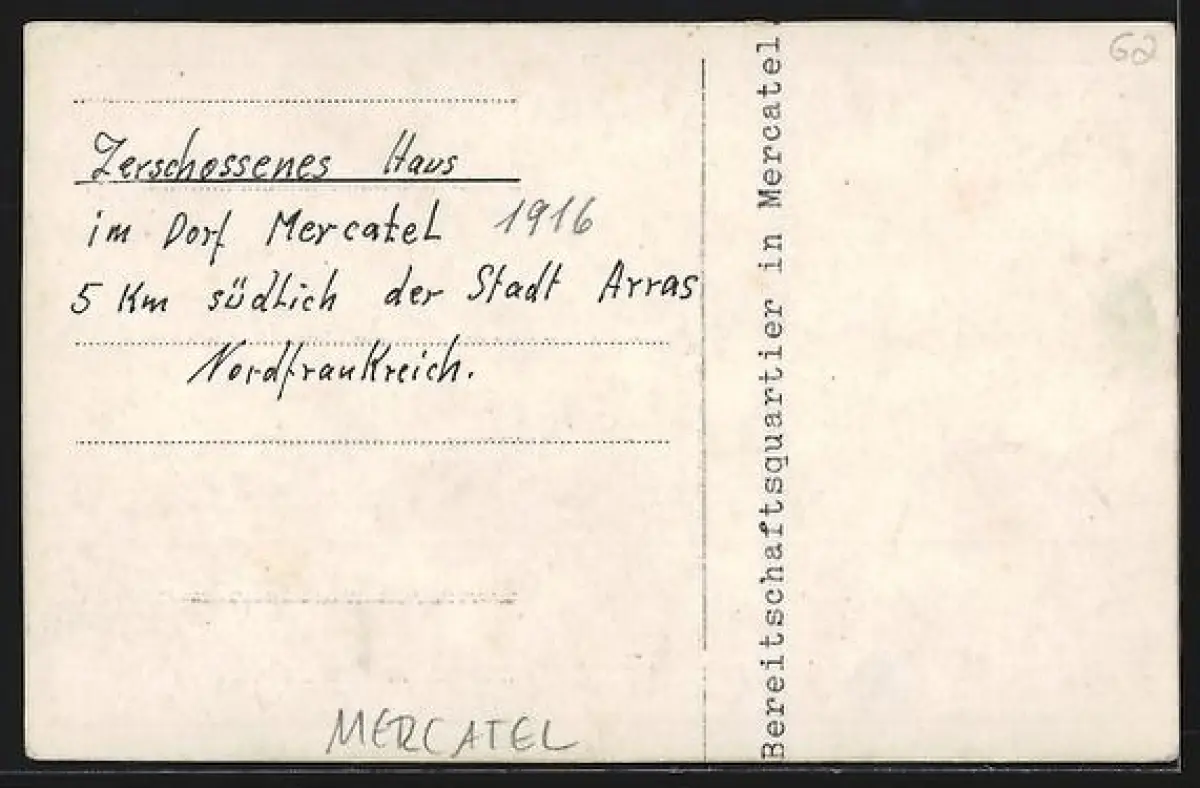 Zerschossenes Haus
im Dorf Mercatel 1916
5 Km südlich der Stadt Arras
Nordfrankreich.
MERCATEL
Bereitschaftsquartier in Mercatel
62